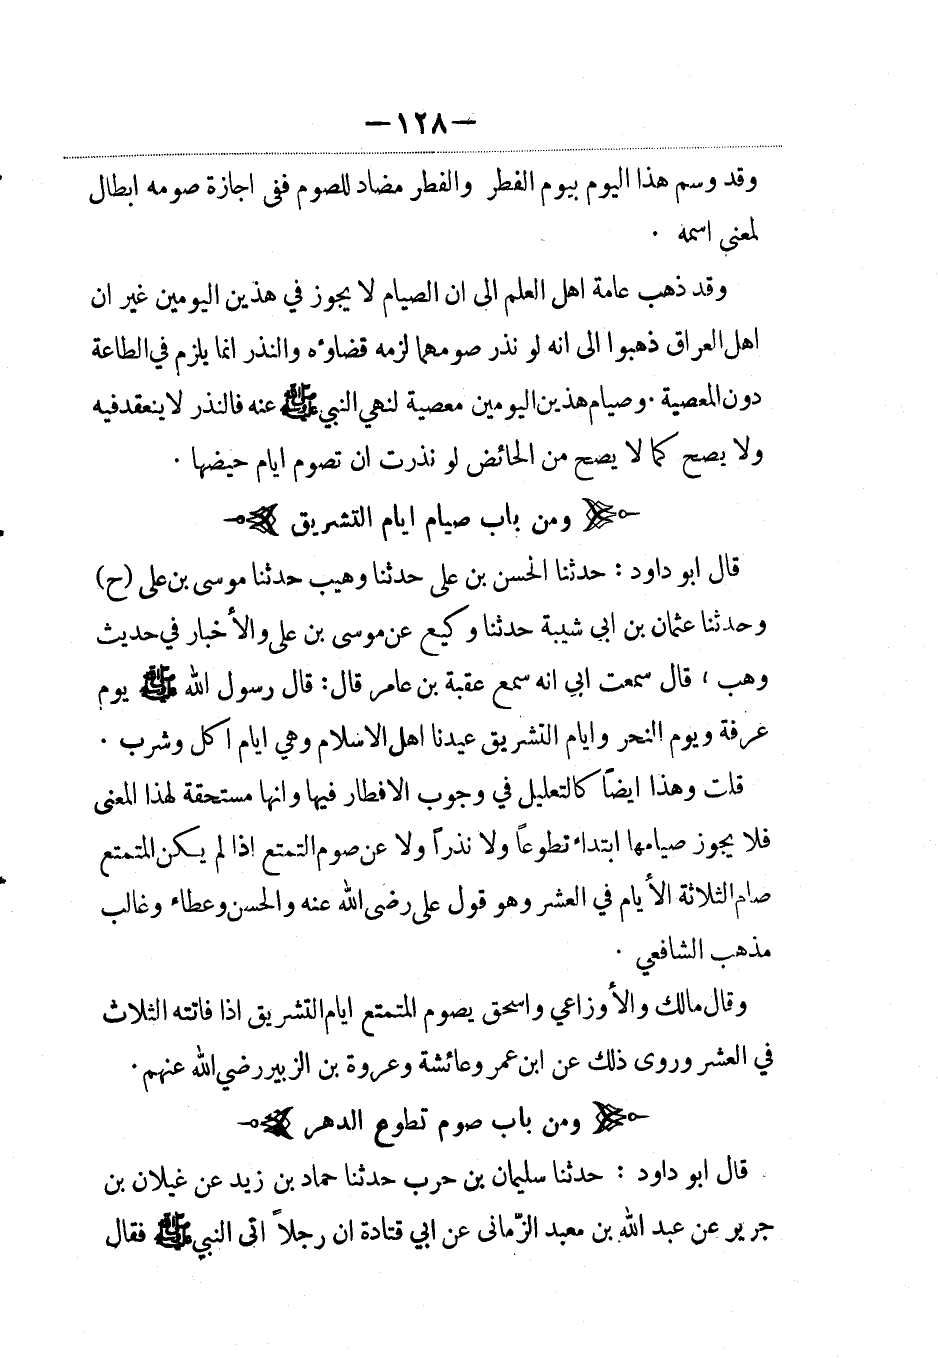 —١٢٨—
وقد وسم هذا اليوم بيوم الفطر والفطر مضاد للصوم ففى اجازة صومه ابطال
لمعنى اسمه ٠
وقد ذهب عامة اهل العلم الى ان الصيام لا يجوز في هذين اليومين غير ان
اهل العراق ذهبوا الى انه لو نذر صومهما لزمه قضاوءه والنذر انما يلزم في الطاعة
دون المعصية ٠ وصيام هذين اليومين معصية لنهي النبي ﷺ عنه فالنذر لا ينعقد فيه
ولا يصح كما لا يصح من الحائض لو نذرت ان تصوم ايام حيضها ٠
ومن باب صيام ايام التشريق
قال ابو داود : حدثنا الحسن بن على حدثنا وهيب حدثنا موسى بن على (ح)
وحدثنا عثمان بن ابي شيبة حدثنا وكيع عن موسى بن على والأخبار في حديث
وهب ، قال سمعت ابي انه سمع عقبة بن عامر قال: قال رسول الله ﷺ يوم
عرفة ويوم النحر وايام التشريق عيدنا اهل الاسلام وهي ايام اكل وشرب ٠
قلت وهذا ايضاً كالتعليل في وجوب الافطار فيها وانها مستحقة لهذا المعنى
فلا يجوز صيامها ابتداء تطوعاً ولا نذراً ولا عن صوم التمتع اذا لم يكن المتمتع
صام الثلاثة الأيام في العشر وهو قول على رضى الله عنه والحسن وعطاء وغالب
مذهب الشافعي ٠
وقال مالك والأوزاعي واسحق يصوم المتمتع ايام التشريق اذا فاتته الثلاث
في العشر وروى ذلك عن ابن عمر وعائشة وعروة بن الزبير رضي الله عنهم ٠
ومن باب صوم تطوع الدهر
قال ابو داود : حدثنا سليمان بن حرب حدثنا حماد بن زيد عن غيلان بن
جرير عن عبد الله بن معبد الزّمانى عن ابي قتادة ان رجلاً اتى النبي ﷺ فقال